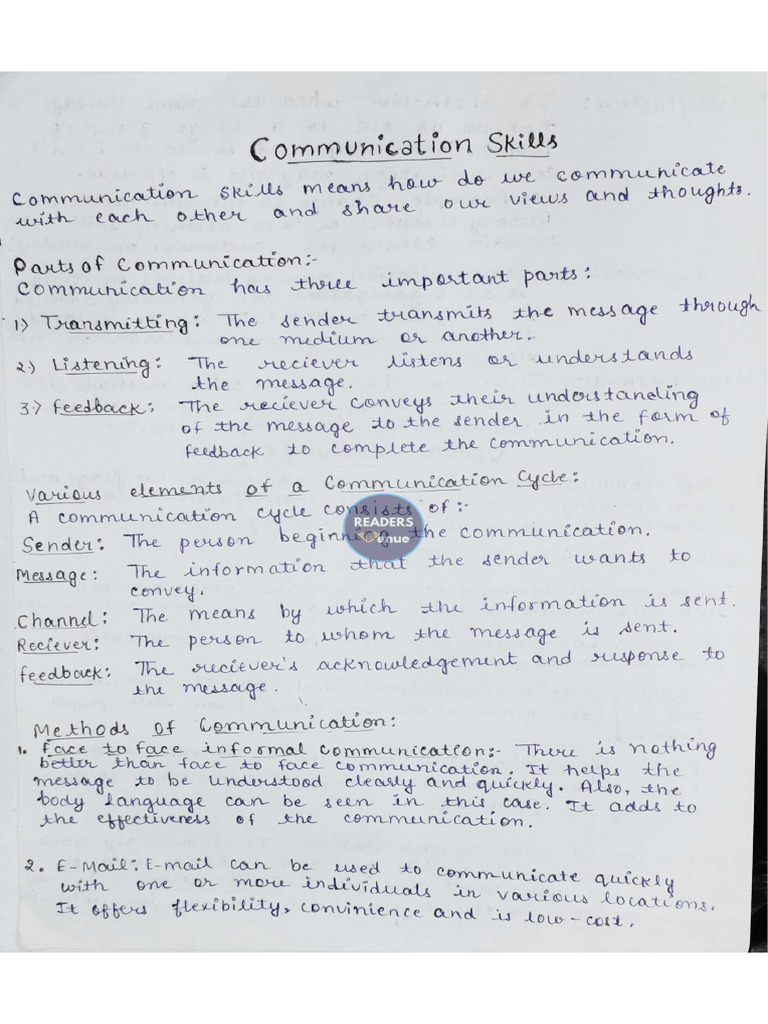 Communication Skills
Communication skills means how do we communicate
with each other and share our views and thoughts.
Parts of Communication:-
Communication has three important parts:
1) Transmitting: The sender transmits the message through
one medium or another.
2) Listening: The reciever listens or understands
the message.
3) Feedback: The reciever conveys their understanding
of the message to the sender in the form of
feedback to complete the communication.
Various elements of a Communication Cycle:
A communication cycle consists of:-
READERS
nue
Sender: The person beginning the communication.
Message: The information that the sender wants to
convey.
Channel: The means by which the information is sent.
Reciever: The person to whom the message is sent.
feedback: The reciever's acknowledgement and response to
the message.
Methods of Communication:
1. Face to face informal communication:- There is nothing
better than face to face communication. It helps the
message to be understood clearly and quickly. Also, the
body language can be seen in this case. It adds to
the effectiveness of the communication.
2. E-Mail: E-mail can be used to communicate quickly
with one or more individuals in various locations.
It offers flexibility, convinience and is low-cost.